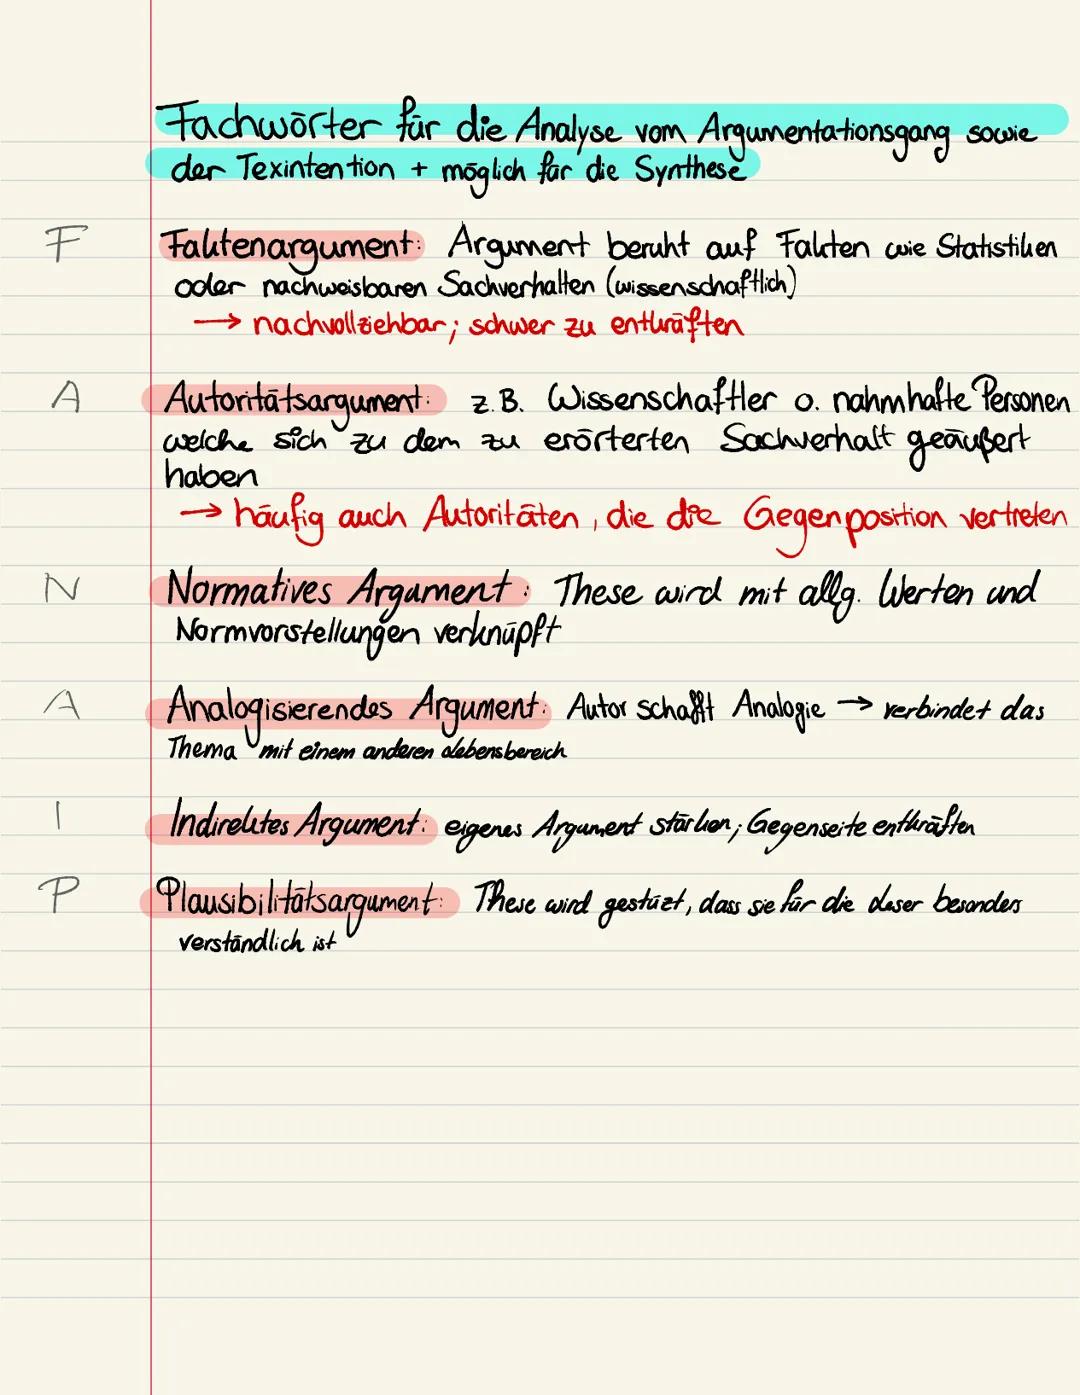 Fachwörter für die Analyse vom Argumentationsgang sowie
der Texintention + möglich für die Synthese
F Faktenargument: Argument beruht auf Fakten wie Statistiken
oder nachweisbaren Sachverhalten (wissenschaftlich)
→ nachvollziehbar; schwer zu entkräften
A Autoritätsargument: z.B. Wissenschaftler o. nahmhafte Personen
welche sich zu dem zu erörterten Sachverhalt geäußert
haben
→ häufig auch Autoritäten, die die Gegenposition vertreten
N Normatives Argument: These wird mit allg. Werten und
Normvorstellungen verknüpft
A Analogisierendes Argument: Autor schafft Analogie → verbindet das
Thema mit einem anderen Lebensbereich
I Indirektes Argument: eigenes Argument stärken; Gegenseite entkräften
P Plausibilitätsargument: These wird gestüzt, dass sie für die Leser besonders
verständlich ist